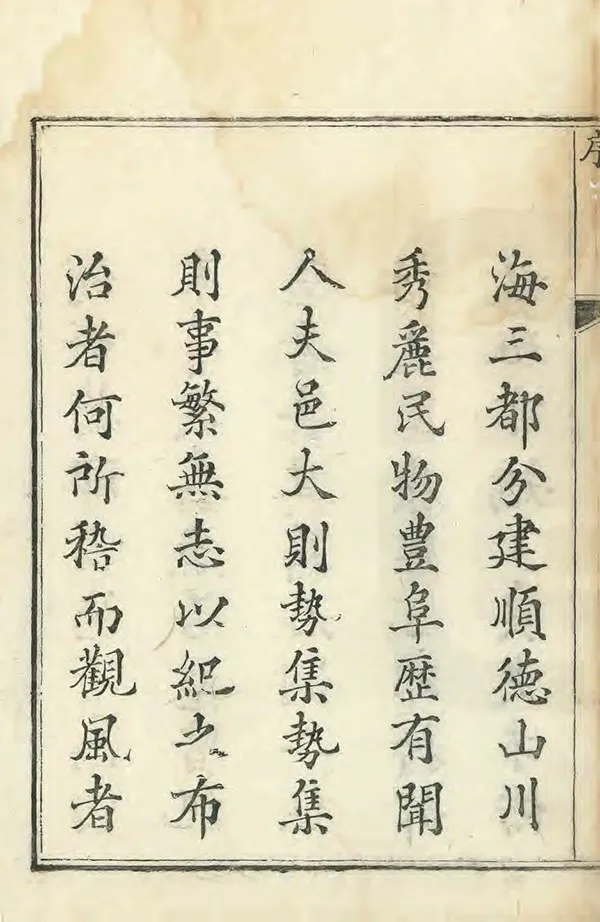 序
海三都分建順徳山川
秀麗民物豊阜歴有聞
人夫邑大則勢集勢集
則事繁無志以紀之布
治者何所稽而觀風者